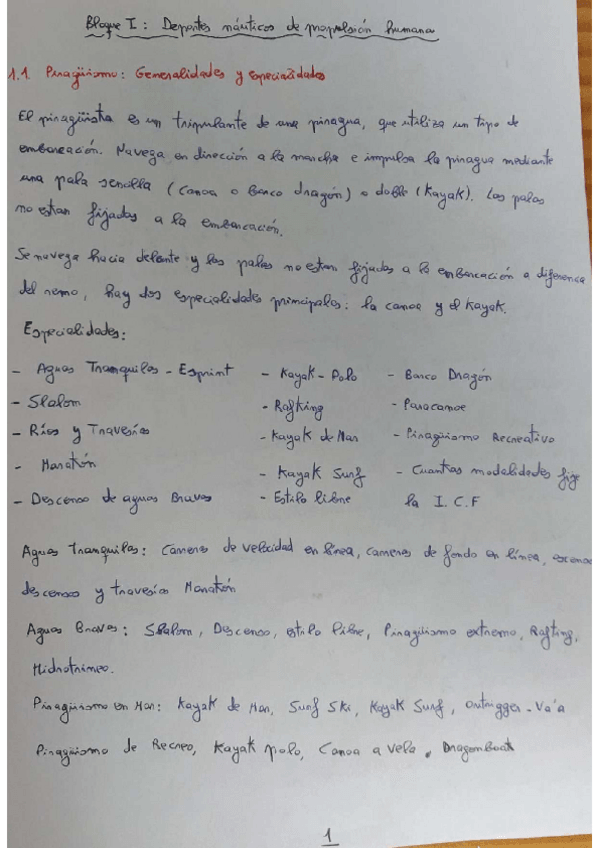 Bloque I: Deportes náuticos de propulsión humana
1.1. Piragüismo: Generalidades y especialidades
El piragüista es un tripulante de una piragua, que utiliza un tipo de
embarcación. Navega en dirección a la marcha e impulsa la piragua mediante
una pala sencilla (canoa o Barco dragón) o doble (Kayak). Las palas
no estan fijadas a la embarcación.
Se navega hacia delante y las palas no estan fijadas a la embarcación a diferencia
del remo, hay dos especialidades principales: la canoa y el Kayak.
Especialidades:
- Aguas Tranquilas - Esprint - Kayak - Polo - Barco Dragón
- Slalom - Rafking - Paracanoe
- Ríos y Travesías - Kayak de Mar - Piragüismo Recreativo
- Maratón - Kayak Surf - Cuantras modalidades fije
- Descenso de aguas Bravas - Estilo libre la I.C.F
Aguas Tranquilas: Carreras de velocidad en línea, carreras de fondo en línea,
descensos y travesías Maratón
Aguas Bravas: Slalom, Descenso, estilo libre, Piragüismo extremo, Rafting,
Hidrotrineo.
Piragüismo en Mar: Kayak de Mar, Surf Ski, Kayak Surf, Outrigger - Va'a
Piragüismo de Recreo, Kayak polo, Canoa a vela, DragonBoat
1